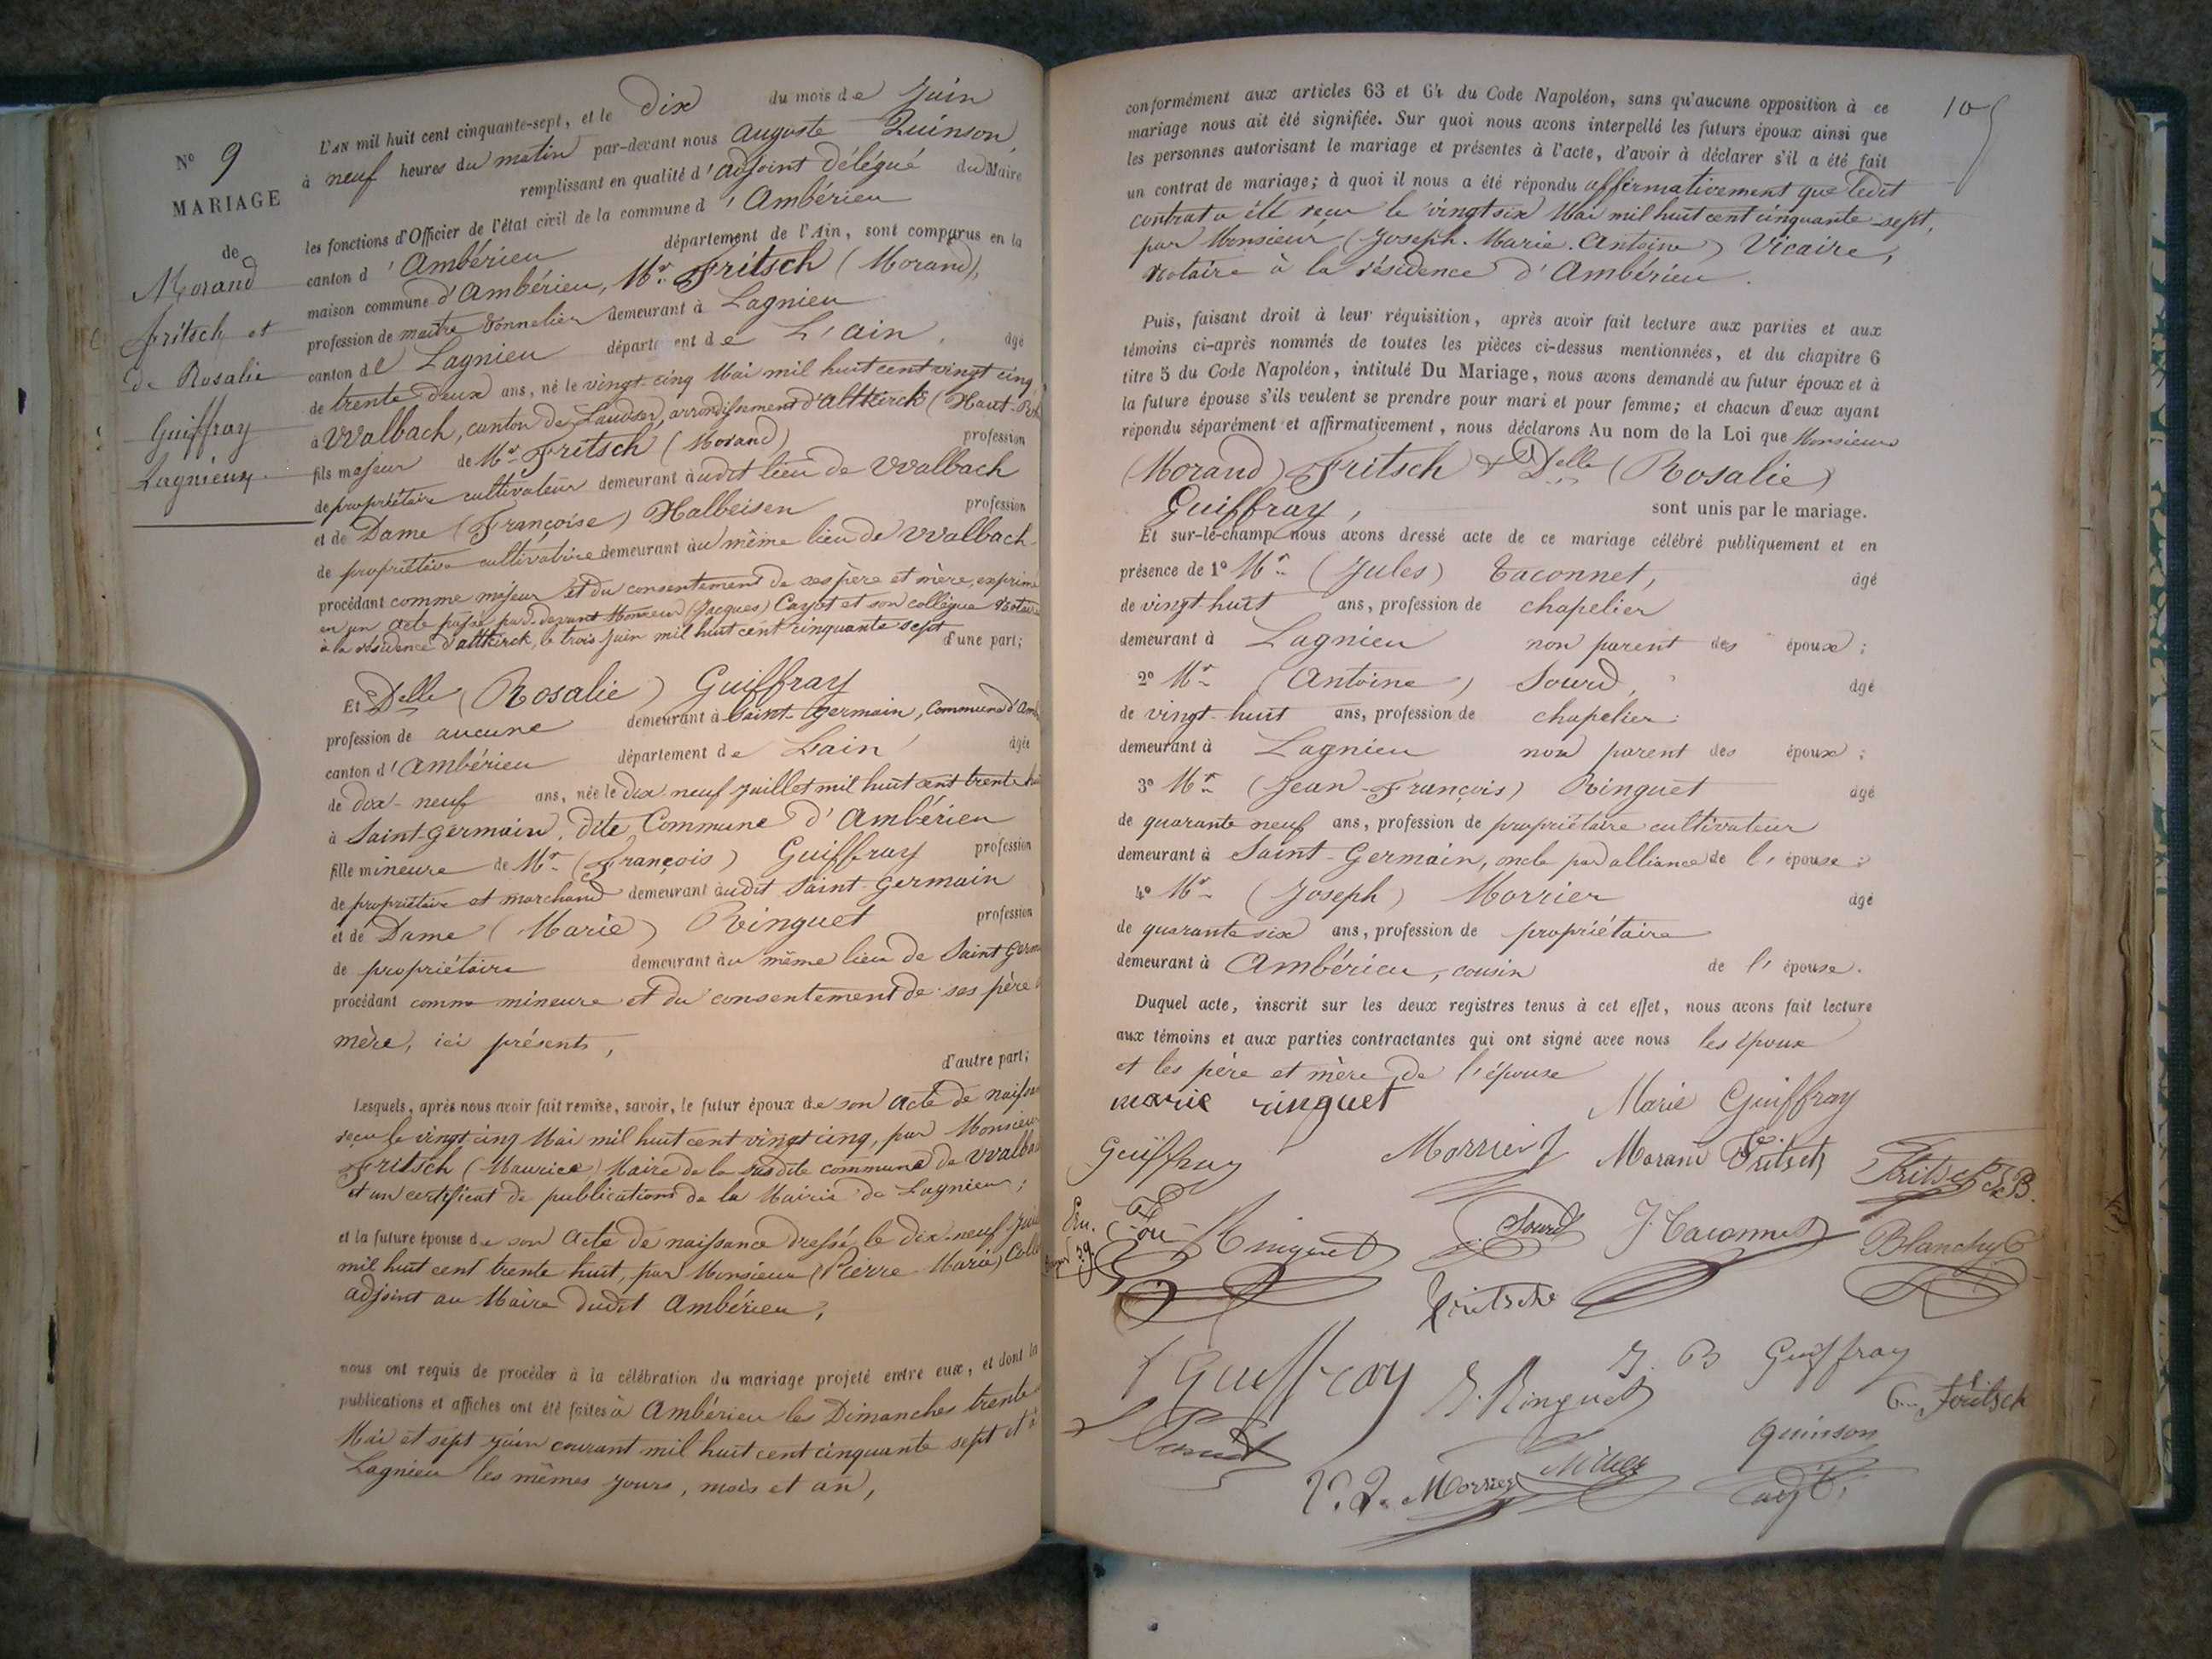 N° 9
MARIAGE
de
Morand
Fritsch et
de Rosalie
Guiffray
Lagnieux.
L'AN mil huit cent cinquante-sept, et le dix du mois de Juin
à neuf heures du matin par-devant nous Auguste Quinson,
remplissant en qualité d'adjoint délégué du Maire
les fonctions d'Officier de l'état civil de la commune d'Ambérieu
canton d'Ambérieu département de l'Ain, sont comparus en la
maison commune d'Ambérieu, Mr. Fritsch (Morand),
profession de maître tonnelier demeurant à Lagnieu
canton de Lagnieu département de L'ain, âgé
de trente deux ans, né le vingt-cinq Mai mil huit cent vingt cinq
à Walbach, canton de Landser, arrondissement d'altkirck (Haut-Rh
fils majeur de Mr. Fritsch (Morand) profession
de propriétaire cultivateur demeurant audit lieu de Walbach
et de Dame (Françoise) Halbeisen profession
de propriétaire cultivatrice demeurant au même lieu de Walbach
procédant comme majeur et du consentement de ses père et mère, exprimé
en un acte passé par-devant Monsieur (Jacques) Cayot et son collègue Notaires
à la résidence d'altkirck, le trois Juin mil huit cent cinquante sept d'une part;
Et Delle (Rosalie) Guiffray
profession de aucune demeurant à Saint-Germain, Commune d'Amb
canton d'Ambérieu département de Lain âgée
de dix-neuf ans, née le dix-neuf Juillet mil huit cent trente hui
à Saint-Germain, dite Commune d'Ambérieu
fille mineure de Mr. (François) Guiffray profession
de propriétaire et marchand demeurant audit Saint-Germain
et de Dame (Marie) Ringuet profession
de propriétaire demeurant au même lieu de Saint Germ
procédant comme mineure et du consentement de ses père
mère, ici présents, d'autre part;
Lesquels, après nous avoir fait remise, savoir, le futur époux de son acte de naissan
reçu le vingt cinq Mai mil huit cent vingt cinq, par Monsieur
Fritsch (Maurice) Maire de la susdite commune de Walba
et un certificat de publications de la Mairie de Lagnieu;
et la future épouse de son acte de naissance dressé le dix-neuf Jui
mil huit cent trente huit, par Monsieur (Pierre-Marie)
adjoint au Maire dudit Ambérieu,
nous ont requis de procéder à la célébration du mariage projeté entre eux, et dont la
publications et affiches ont été faites à Ambérieu les Dimanches trente
Mai et sept Juin courant mil huit cent cinquante sept et à
Lagnieu les mêmes jours, mois et an,
105
conformément aux articles 63 et 64 du Code Napoléon, sans qu'aucune opposition à ce
mariage nous ait été signifiée. Sur quoi nous avons interpellé les futurs époux ainsi que
les personnes autorisant le mariage et présentes à l'acte, d'avoir à déclarer s'il a été fait
un contrat de mariage; à quoi il nous a été répondu affirmativement que ledit
contrat a été reçu le vingt six Mai mil huit cent cinquante-sept,
par Monsieur (Joseph-Marie-Antoine) Vicaire,
Notaire à la résidence d'Ambérieu.
Puis, faisant droit à leur réquisition, après avoir fait lecture aux parties et aux
témoins ci-après nommés de toutes les pièces ci-dessus mentionnées, et du chapitre 6
titre 5 du Code Napoléon, intitulé Du Mariage, nous avons demandé au futur époux et à
la future épouse s'ils veulent se prendre pour mari et pour femme; et chacun d'eux ayant
répondu séparément et affirmativement, nous déclarons Au nom de la Loi que Monsieur
(Morand) Fritsch & Delle (Rosalie)
Guiffray, sont unis par le mariage.
Et sur-le-champ nous avons dressé acte de ce mariage célébré publiquement et en
présence de 1° Mr. (Jules) Taconnet, âgé
de vingt huit ans, profession de chapelier
demeurant à Lagnieu non parent des époux;
2° Mr. (Antoine) Sourd, âgé
de vingt-huit ans, profession de chapelier
demeurant à Lagnieu non parent des époux;
3° Mr. (Jean-François) Ringuet âgé
de quarante neuf ans, profession de propriétaire cultivateur
demeurant à Saint-Germain, oncle par alliance de l'épouse;
4° Mr. (Joseph) Morrier âgé
de quarante six ans, profession de propriétaire
demeurant à Ambérieu, cousin de l'épouse.
Duquel acte, inscrit sur les deux registres tenus à cet effet, nous avons fait lecture
aux témoins et aux parties contractantes qui ont signé avec nous les époux
et les père et mère de l'épouse
marie ringuet Marie Guiffray
Guiffray Morrier J Morand Fritsch Fritsch
Ringuet Sourd J. Taconnet Blanchy
Fritsche
Guiffray J. Ringuet J. B Guiffray
Fritsch
Morrier quinson
adjt.